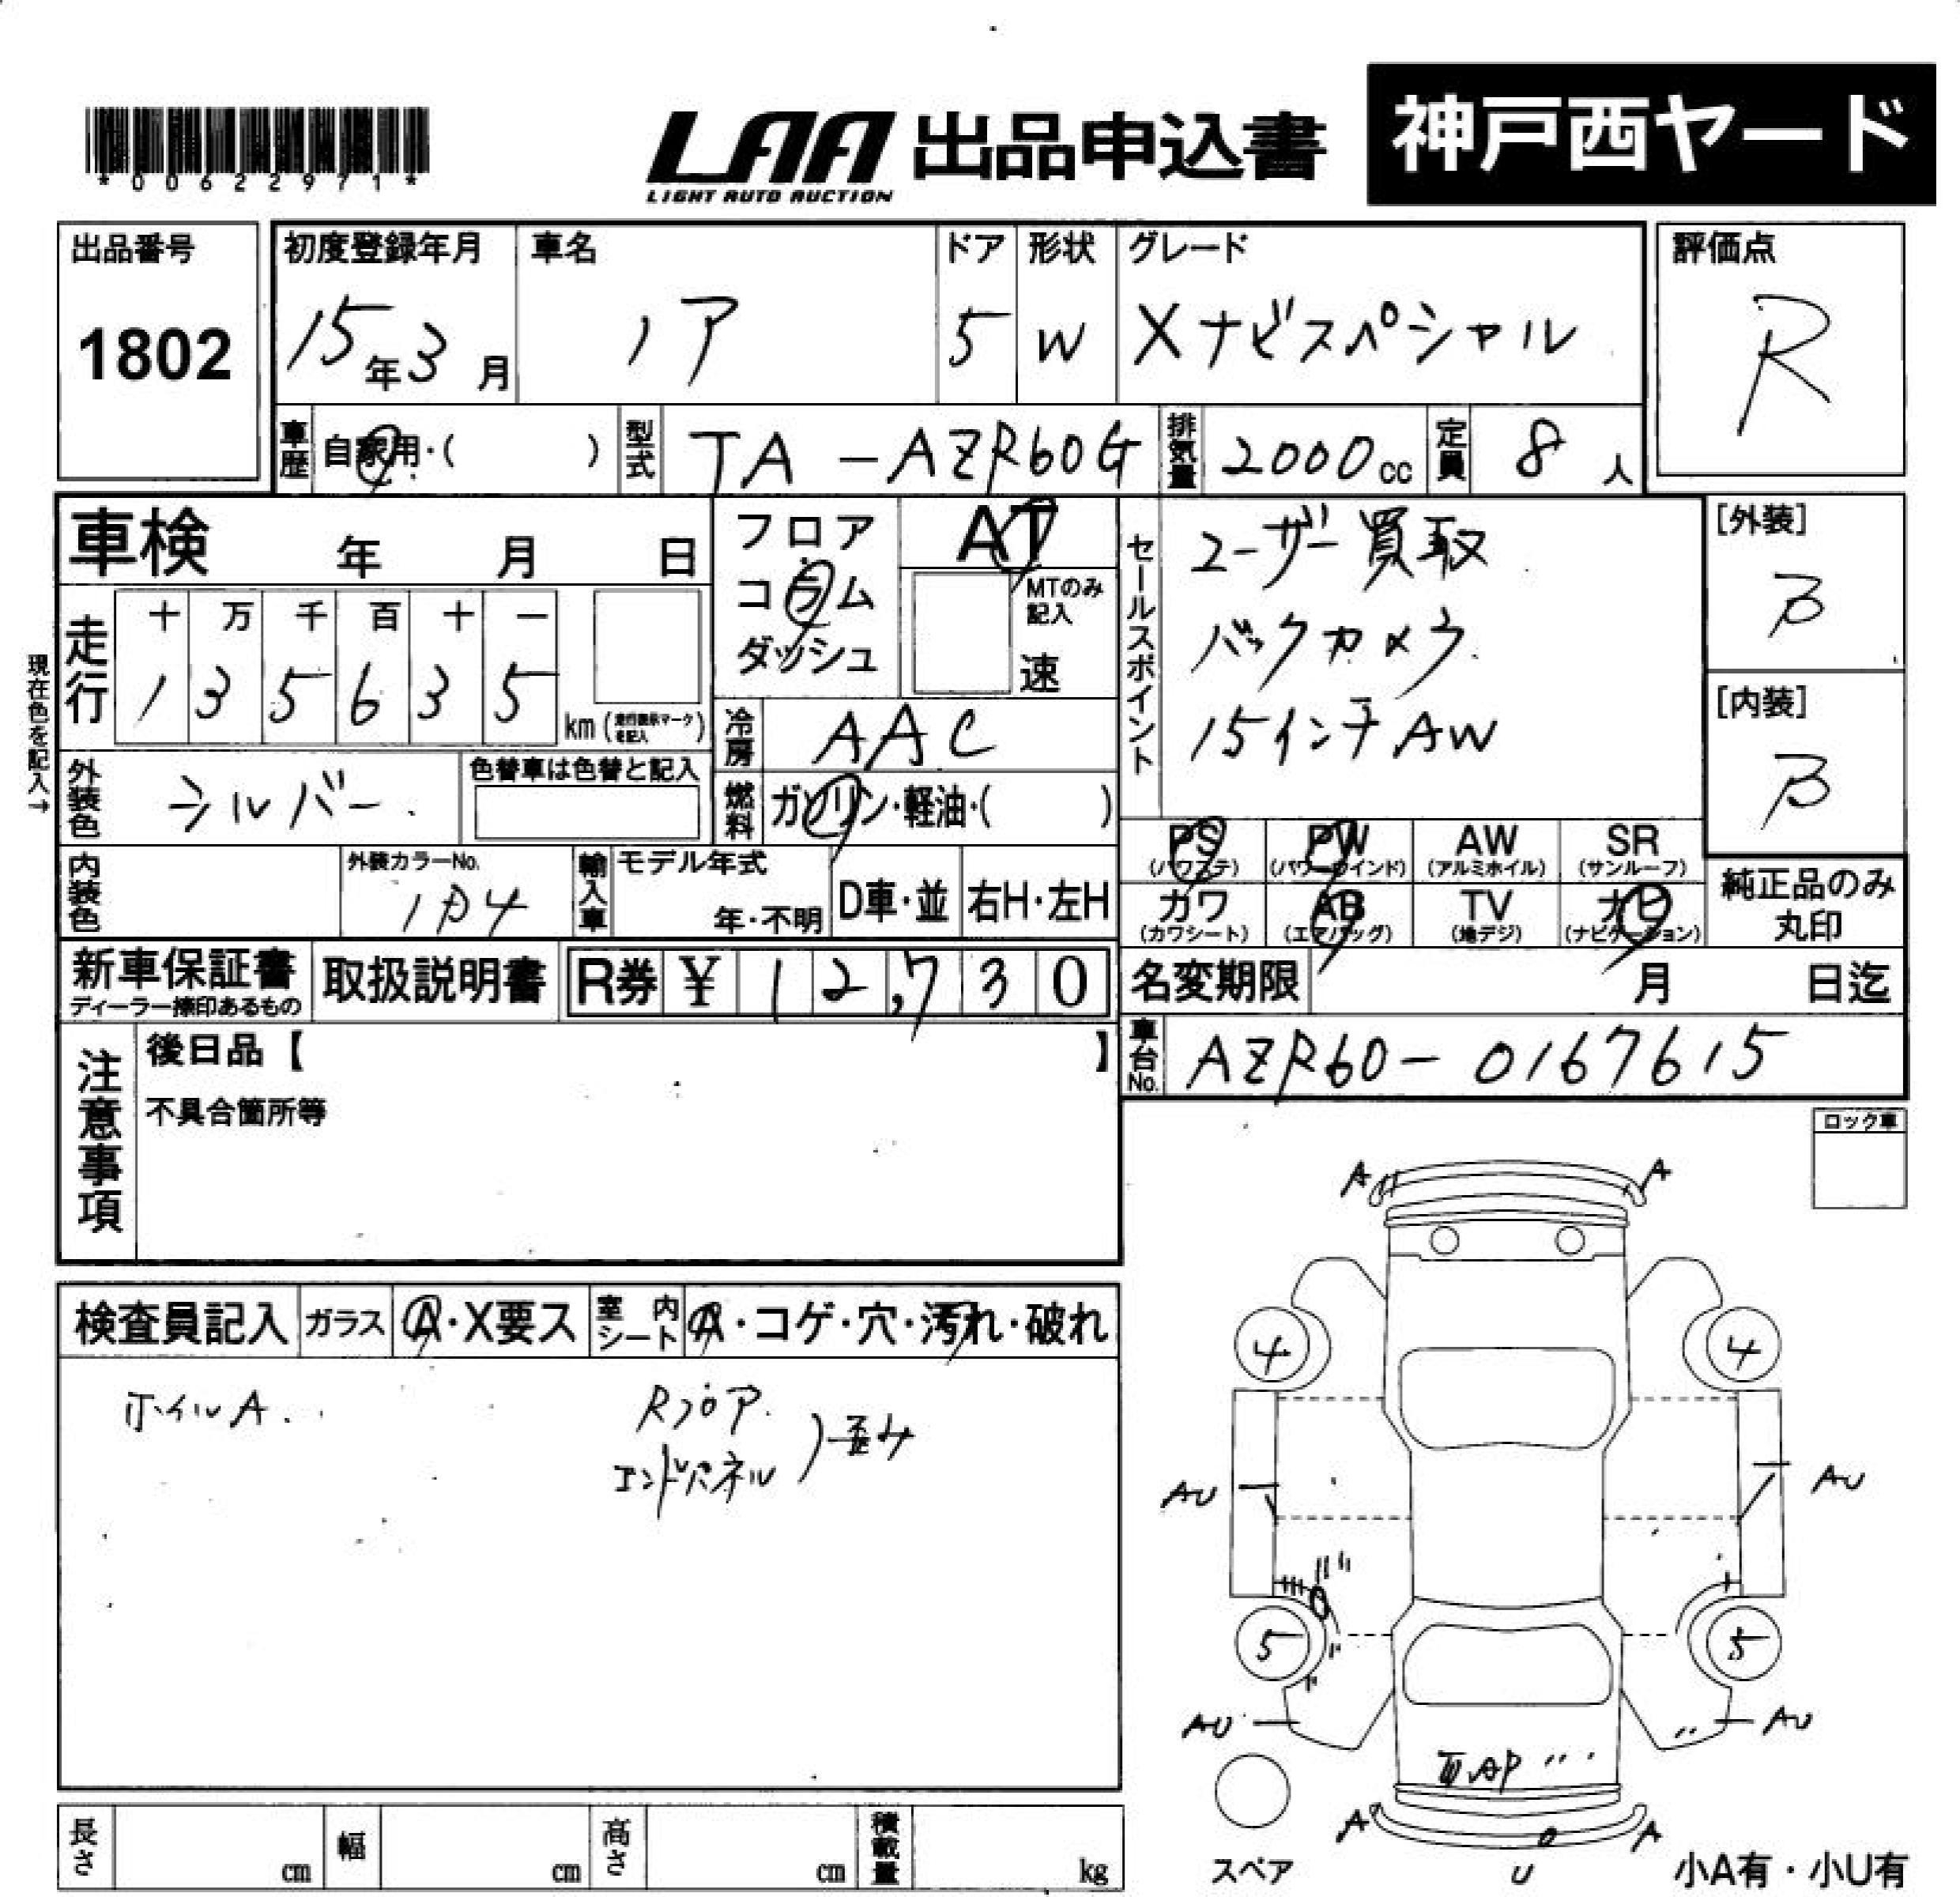 *00622971*
LAA 出品申込書 神戸西ヤード
LIGHT AUTO AUCTION
出品番号 初度登録年月 車名 ドア 形状 グレード 評価点
1802 15年3月 ノア 5 W Xナビスペシャル R
車歴 自家用・( ) 型式 TA-AZR60G 排気量 2000cc 定員 8人
車検 年 月 日
フロア
コラム
ダッシュ
AT
MTのみ
記入
速
走行 十 万 千 百 十 一
1 3 5 6 3 5 km
現在色を記入→
冷房 AAC
外装色 シルバー. 色替車は色替と記入
燃料 ガソリン・軽油・( )
内装色 外装カラーNo. 1P4 輸入車 モデル年式 年・不明 D車・並 右H・左H
セールスポイント
ユーザー買取
バックカメラ
15インチAW
[外装]
B
[内装]
B
PS PW AW SR
(パワステ) (パワーウインド) (アルミホイル) (サンルーフ)
カワ AB TV ナビ
(カワシート) (エアバッグ) (地デジ) (ナビゲーション)
純正品のみ
丸印
新車保証書 取扱説明書 R券 ¥ 12,730
ディーラー捺印あるもの
名変期限 月 日迄
車台No. AZR60-0167615
注意事項
後日品【 】
不具合箇所等
ロック車
検査員記入 ガラス A・X要ス 室内シート A・コゲ・穴・汚れ・破れ
ホイルA.
Rフロア
エンドパネル )歪み
A A
4 4
AU AU
5 5
AU AU
A A
U
スペア
小A有・小U有
長さ cm 幅 cm 高さ cm 積載量 kg